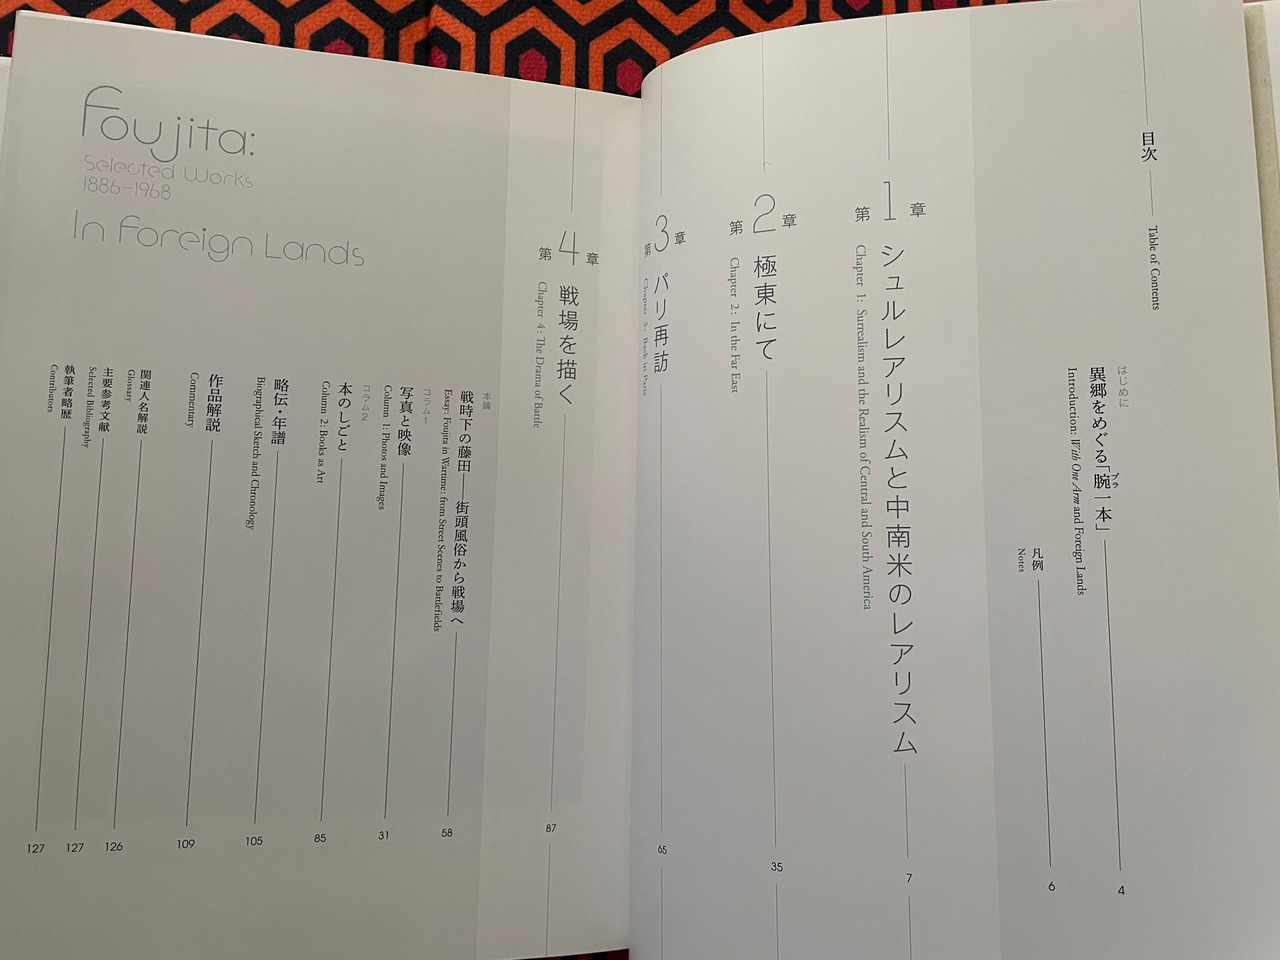 目次
Table of Contents
はじめに
異郷をめぐる「腕一本」
ブラ
Introduction: With One Arm and Foreign Lands
4
凡例
Notes
6
第1章
シュルレアリスムと中南米のレアリスム
Chapter 1: Surrealism and the Realism of Central and South America
7
第2章
極東にて
Chapter 2: In the Far East
35
第3章
パリ再訪
Chapter 3: Back in Paris
65
第4章
戦場を描く
Chapter 4: The Drama of Battle
87
本論
戦時下の藤田——街頭風俗から戦場へ
Essay: Foujita in Wartime: from Street Scenes to Battlefields
58
コラム1
写真と映像
Column 1: Photos and Images
31
コラム2
本のしごと
Column 2: Books as Art
85
略伝・年譜
Biographical Sketch and Chronology
105
作品解説
Commentary
109
関連人名解説
Glossary
126
主要参考文献
Selected Bibliography
127
執筆者略歴
Contributors
127
Foujita:
Selected Works
1886-1968
In Foreign Lands